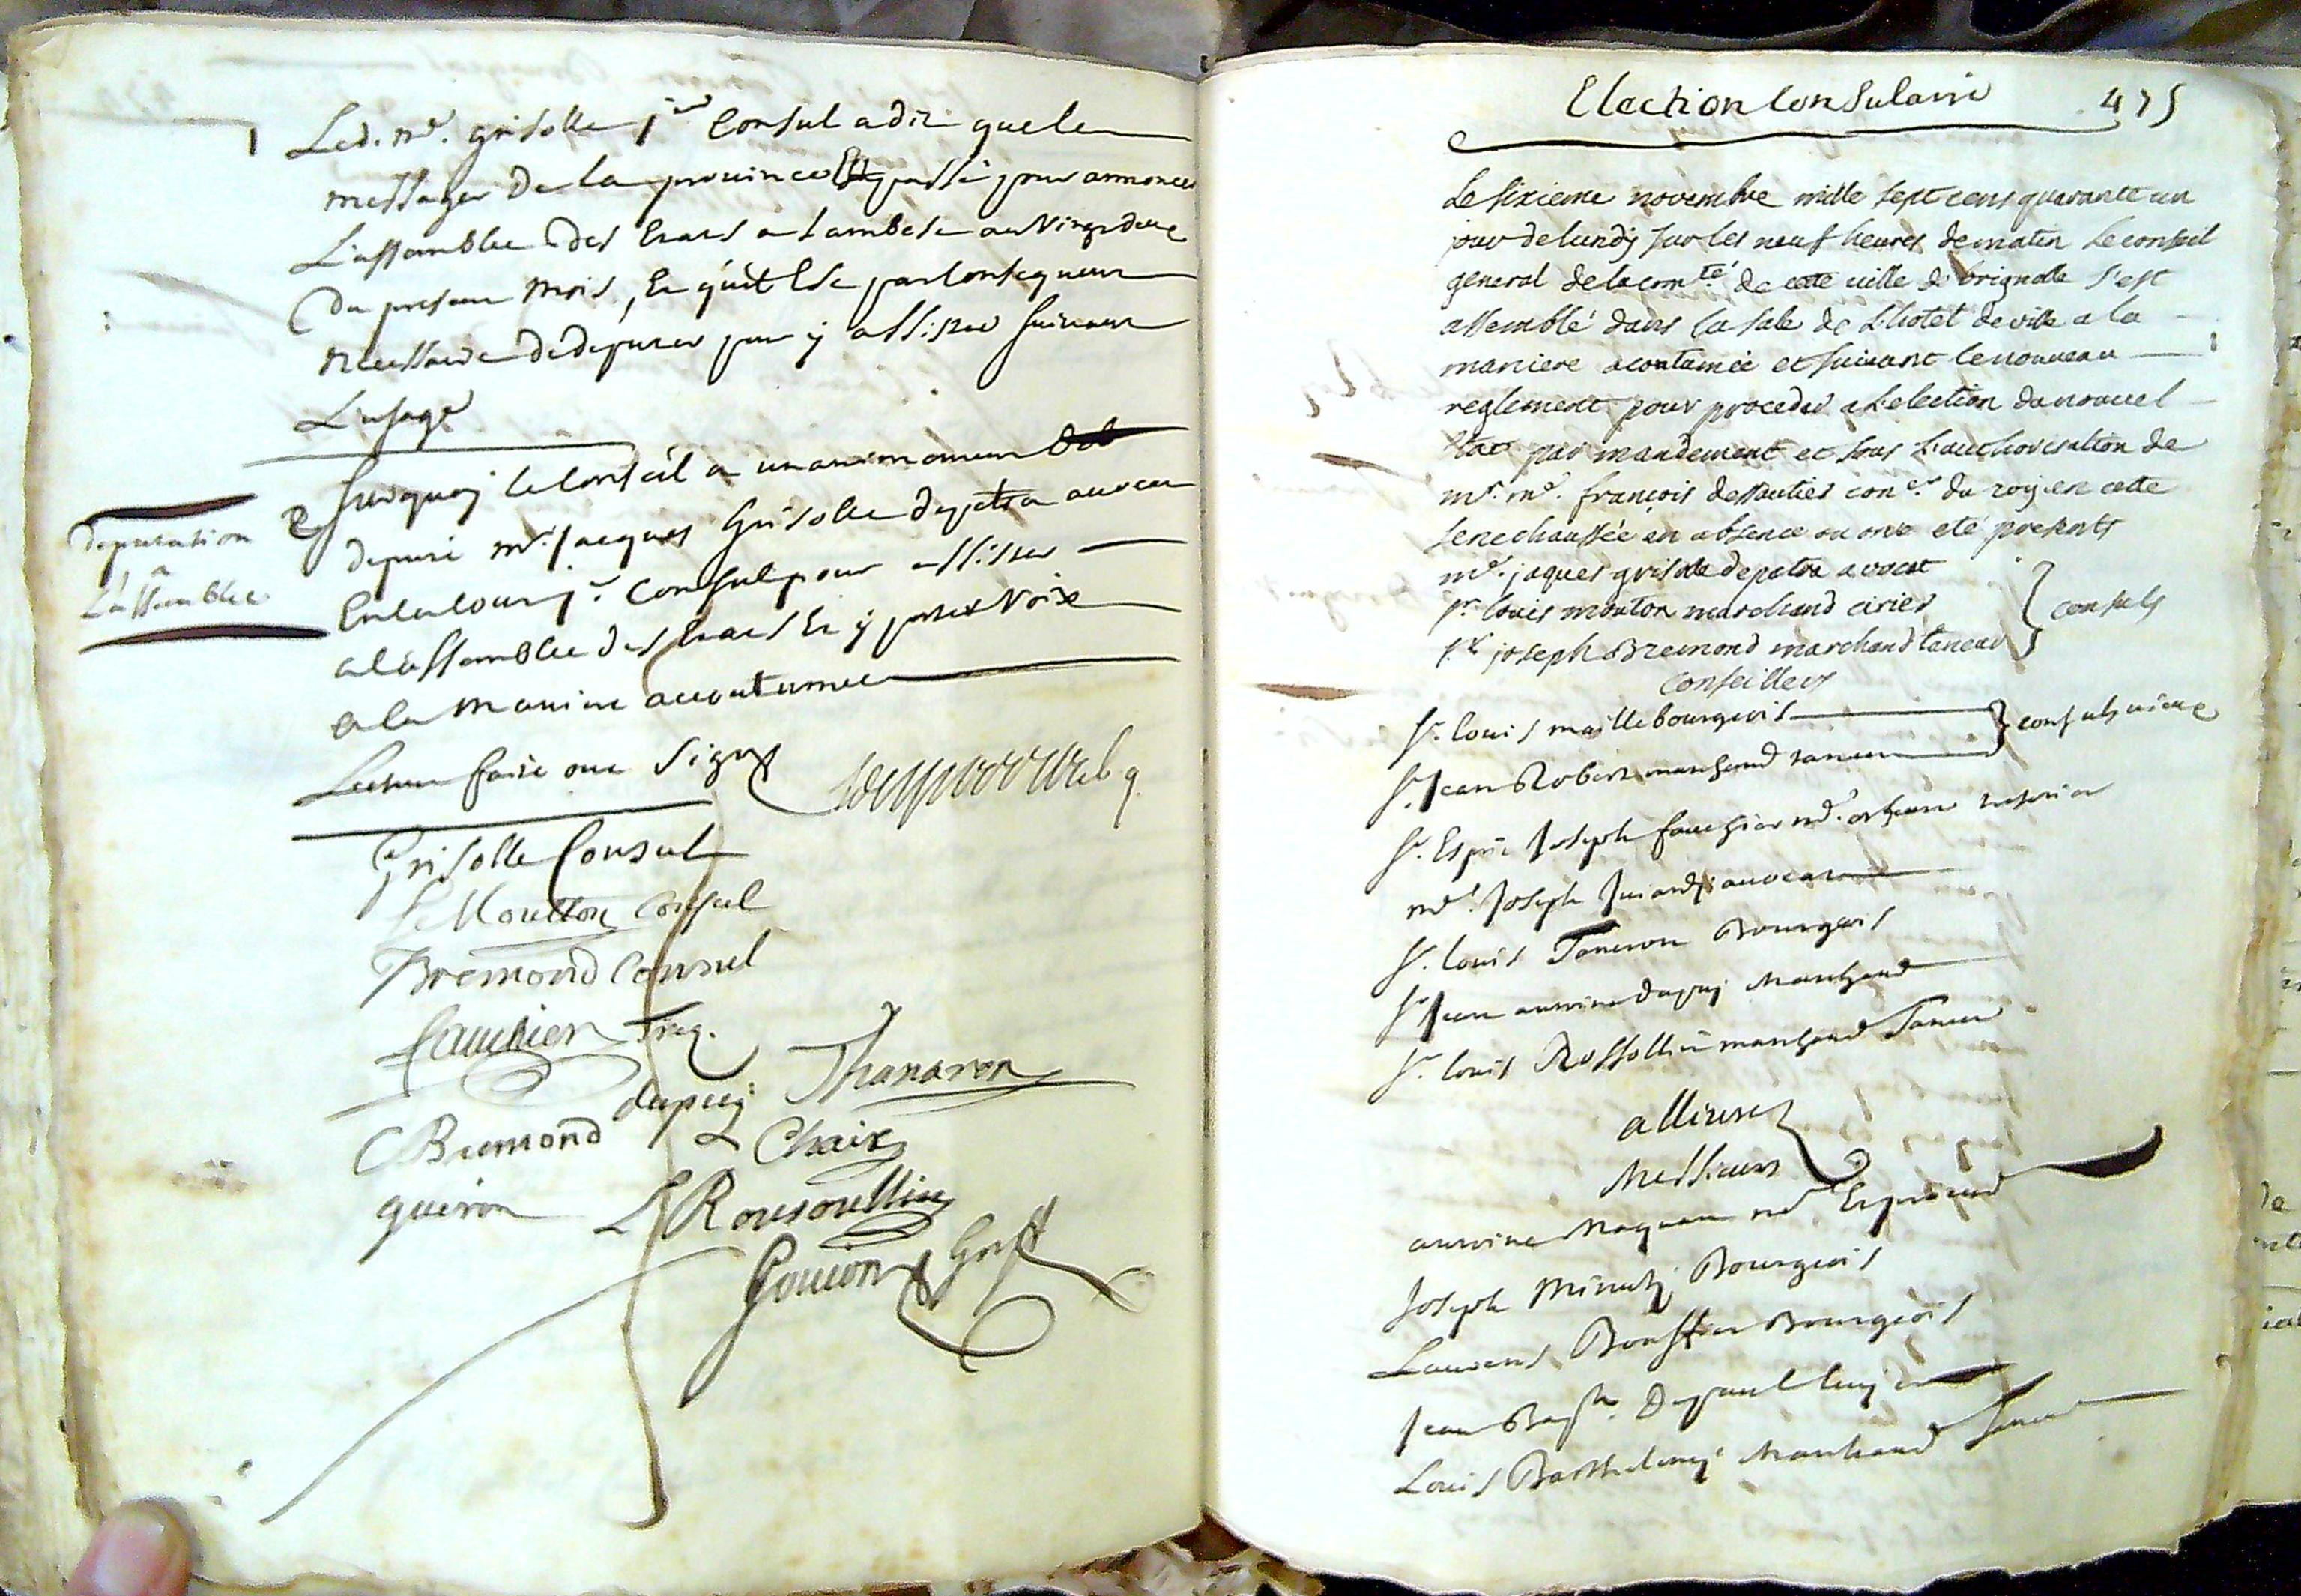 Led. Me. grisolle 1er Consul a dit que le
messager de la province Est passé pour annoncer
L'assemblée des Etats a Lambesc au vingt deux
du present mois, Et qu'il Est par Consequent
necessaire de deputer pour y assister suivant
L'usage
Surquoy le Conseil a unanimement
deputé Mr. Jacques Grisolle depetra avocat
deputation
a
L'assemblée
1er Consul pour assister
a l'assemblée des Etats Et y porter Voix
a la maniere accoutumée
Lecture faite ont signé
Grisolle Consul
L Moutton Consul
Bremond Consul
fauchier Treg.
dupuy Thanaron
C Bremond L Chaix
gueiron L Rousoullin
Gouion Greff
Election Consulaire 475
Le sixieme novembre mille sept cens quarante un
jour de lundy sur les neuf heures de matin Le conseil
general de la comté de cette ville de brignolle s'est
assemblé dans la sale de L'hotel de ville a la
maniere acoutumée et suivant le nouveau
reglement pour proceder a L'election du nouvel
Etat par mandement et sous L'authorisation de
mr. me. françois desparties coner. du roy en cette
senechaussée en absence ou ont eté presents
me. jaques grisolle depetra avocat
sr. louis mouton marchand cirier
sr. joseph Bremond marchand taneur
consuls
Conseillers
Sr. louis maille bourgeois
Sr. Jean Robert marchand taneur
consuls vieux
Sr. Esprit Joseph fauchier
me. Joseph avocat
Sr. louis Taneron Bourgeois
Sr Jean antoine dupuy Marchand
Sr. louis Rossollin marchand Taneur
Messieurs
antoine
Joseph Minuty Bourgeois
Laurens Bourgeois
Jean Bapte.
Louis Barthelemy Marchand Taneur